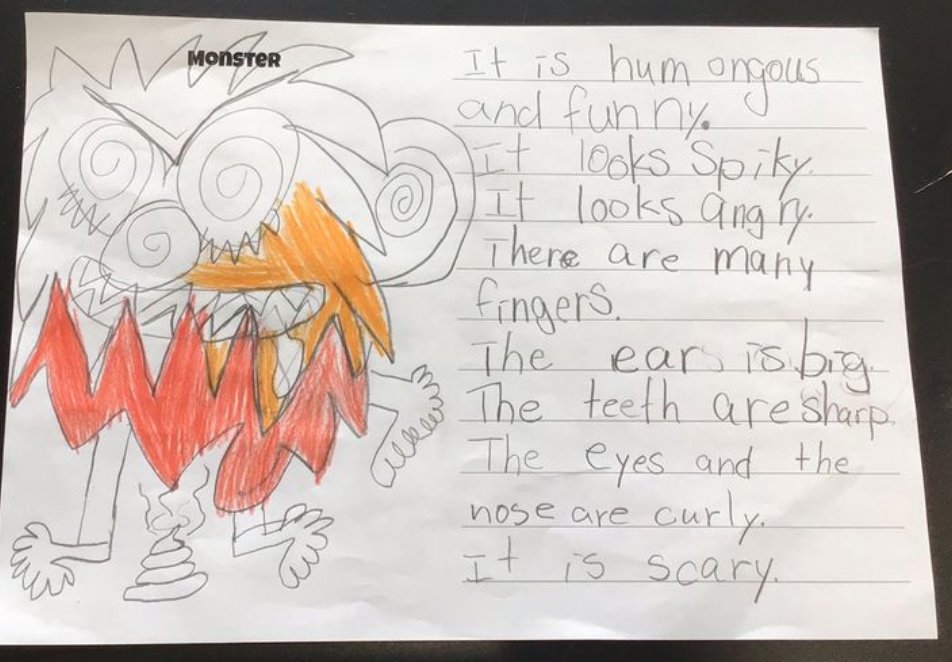 MONSTER
It is humongous
and funny.
It looks spiky.
It looks angry.
There are many
fingers.
The ear is big.
The teeth are sharp.
The eyes and the
nose are curly.
It is scary.